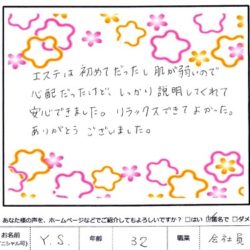 エステは初めてだったし肌が弱いので
心配だったけど、しっかり説明してくれて
安心できました。リラックスできてよかった。
ありがとうございました。
あなた様の声を、ホームページなどでご紹介してもよろしいですか? □はい □匿名で □ダメ
お名前 Y.S. 年齢 32 職業 会社員
ニシャル可)